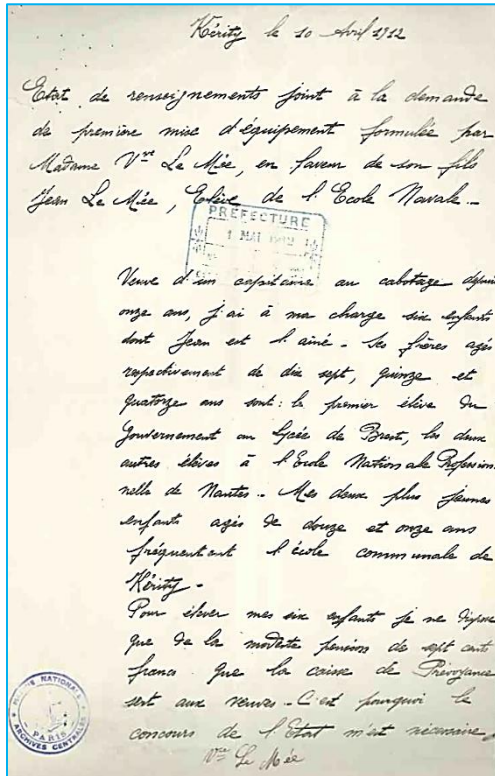 Kérity le 10 Avril 1912
Etat de renseignements joint à la demande
de première mise d'équipement formulée par
Madame Vve Le Mée, en faveur de son fils
Jean Le Mée, Elève de l'Ecole Navale.-
PREFECTURE
1 MAI 1912
Veuve d'un capitaine au cabotage depuis
onze ans, j'ai à ma charge six enfants
dont Jean est l'aîné - Ses frères agés
respectivement de dix sept, quinze et
quatorze ans sont: le premier élève du
Gouvernement au Lycée de Brest, les deux
autres élèves à l'Ecole Nationale Profession-
nelle de Nantes - Mes deux plus jeunes
enfants agés de douze et onze ans
fréquentent l'école communale de
Kérity -
Pour élever mes six enfants je ne dispose
que de la modeste pension de sept cents
francs que la caisse de Prévoyance
sert aux veuves - C'est pourquoi le
concours de l'Etat m'est nécessaire.
Vve Le Mée
NATIONALE
PARIS
ARCHIVES CENTRALES